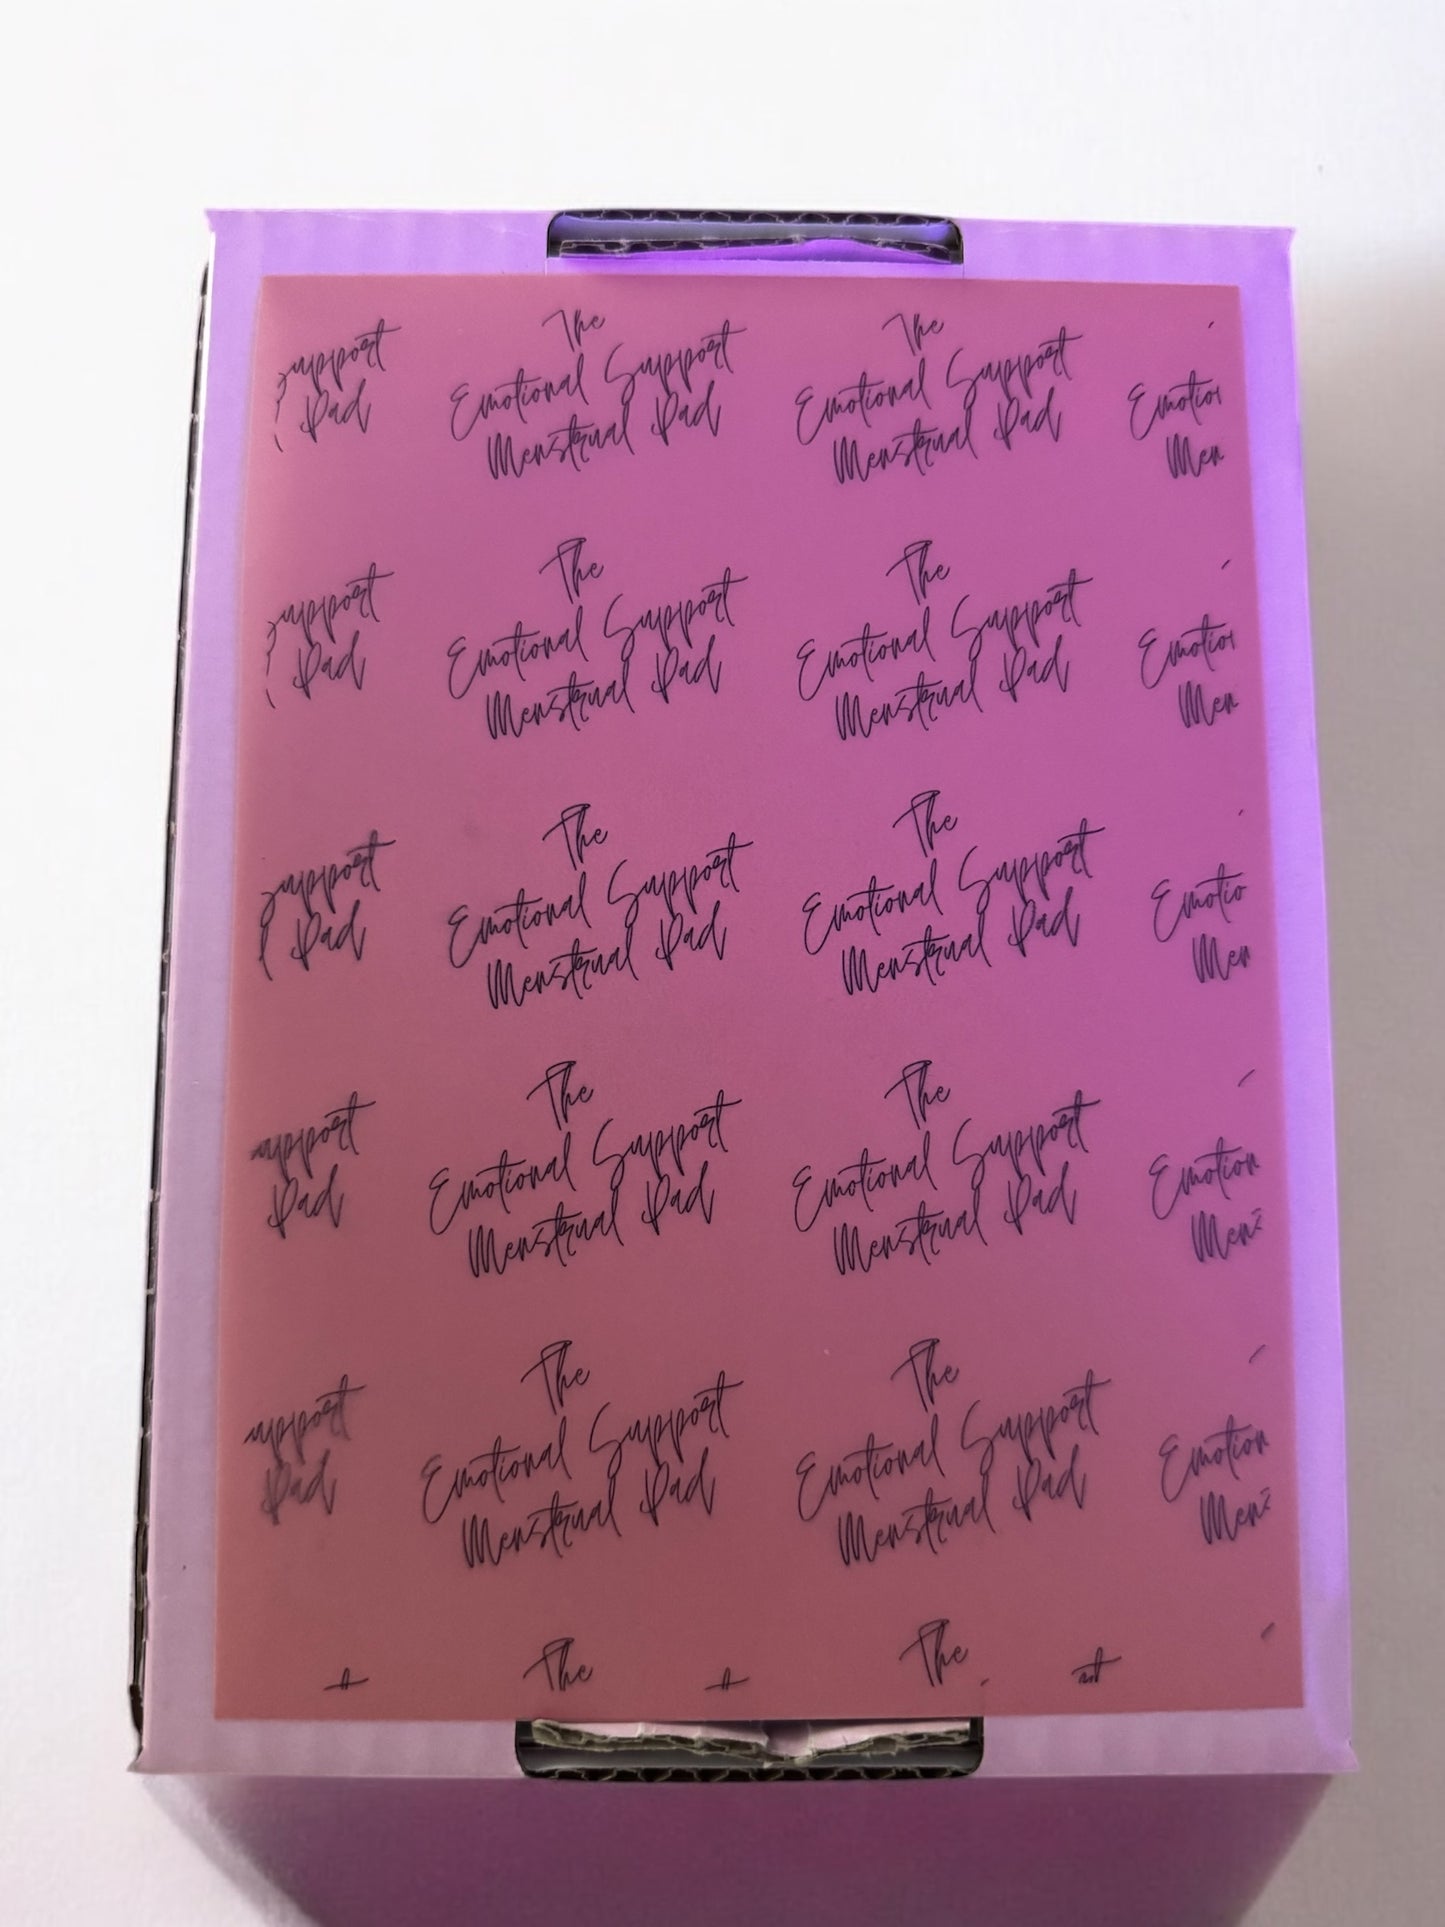 upport
Pad
The
Emotional Support
Menstrual Pad
The
Emotional Support
Menstrual Pad
Emotio
Men
upport
Pad
The
Emotional Support
Menstrual Pad
The
Emotional Support
Menstrual Pad
Emotio
Men
upport
Pad
The
Emotional Support
Menstrual Pad
The
Emotional Support
Menstrual Pad
Emotio
Men
upport
Pad
The
Emotional Support
Menstrual Pad
The
Emotional Support
Menstrual Pad
Emotion
Men
upport
Pad
The
Emotional Support
Menstrual Pad
The
Emotional Support
Menstrual Pad
Emotion
Men
The
The